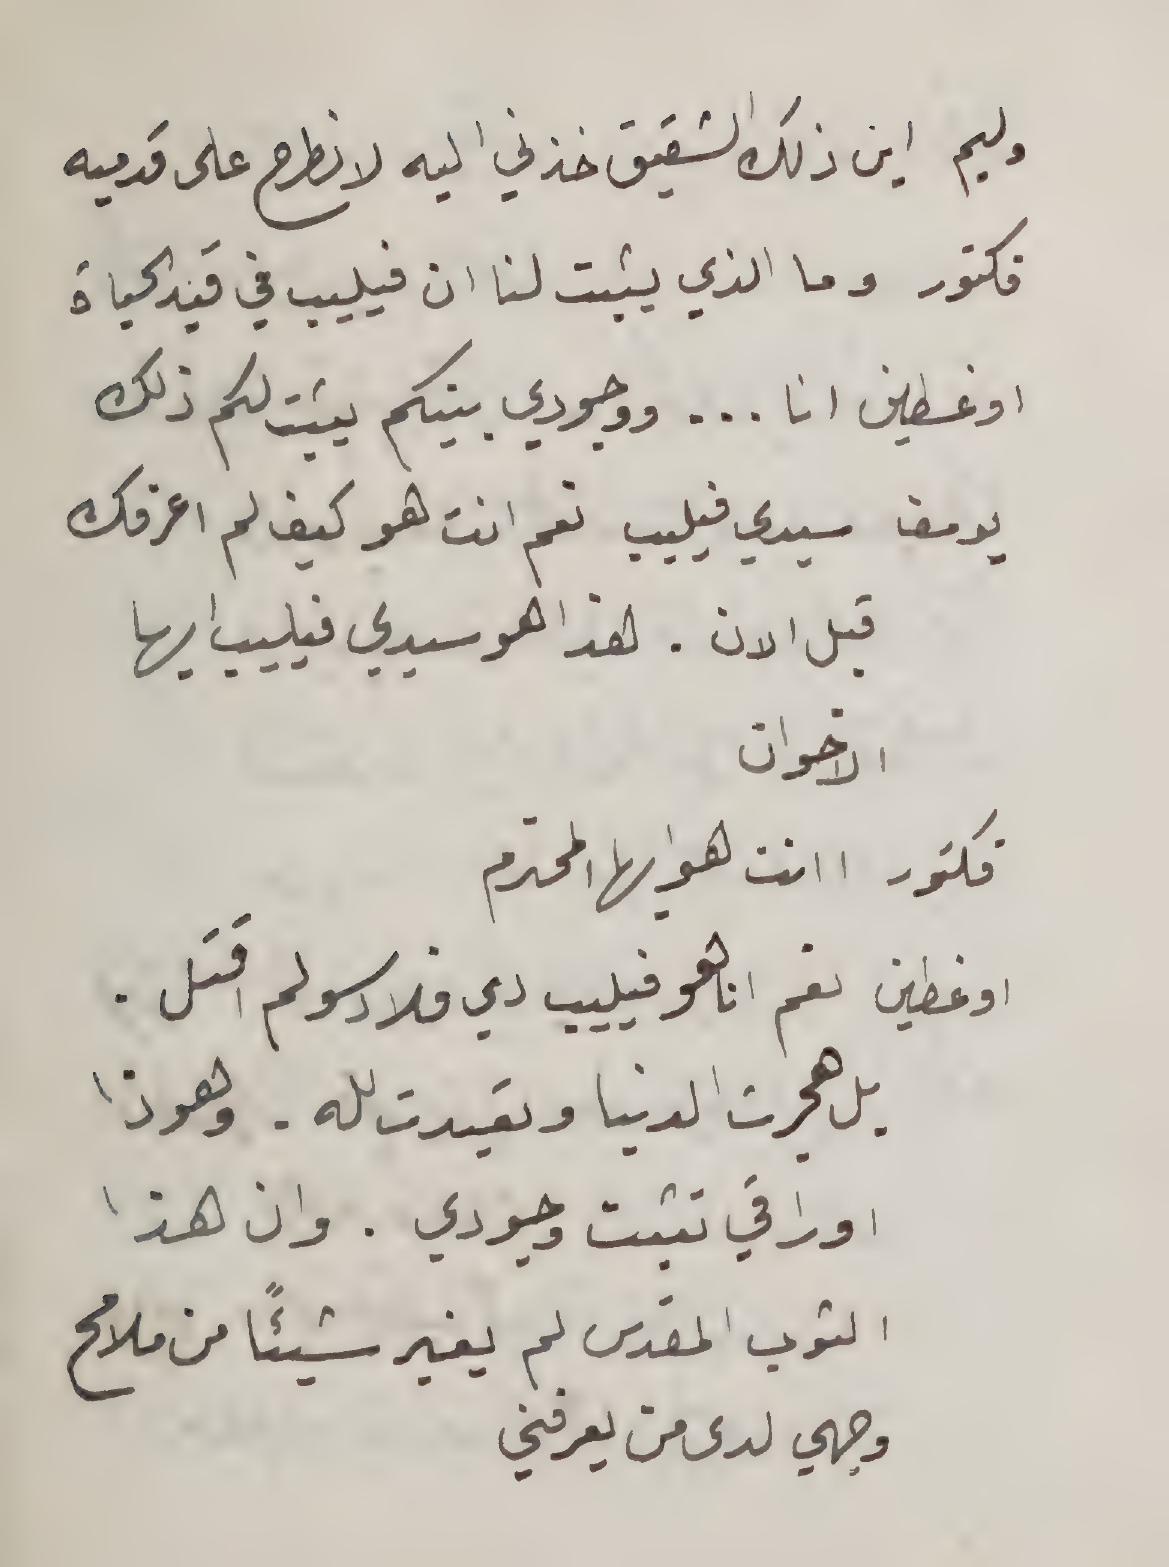 وليم اين ذلك الشقيق خذني اليه لانطرح على قدميه
فكتور وما الذي يثبت لنا ان فيليب في قيد الحياة
اوغسطين انا ... ووجودي بينكم يثبت لكم ذلك
يوسف سيدي فيليب نعم انت هو كيف لم اعرفك
قبل الان . هذا هو سيدي فيليب ايها
الاخوان
فكتور اانت هو ايها المحترم
اوغطين نعم انا هو فيليب دي فلادسو لم اقتل .
بل هجرت الدنيا وتعبدت لله . وهوذا
اوراقي تثبت وجودي . وان هذا
الثوب المقدس لم يغير شيئًا من ملامح
وجهي لدى من يعرفني